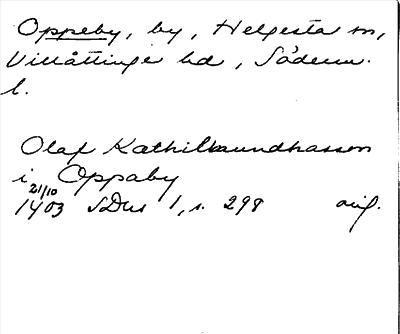 Oppeby, by, Helgesta sn,
Villåttinge hd, Söderm.
l.
Olaf Kæthilmundhasson
i Oppaby
21/10
1403 SDns 1, s. 298 orig.